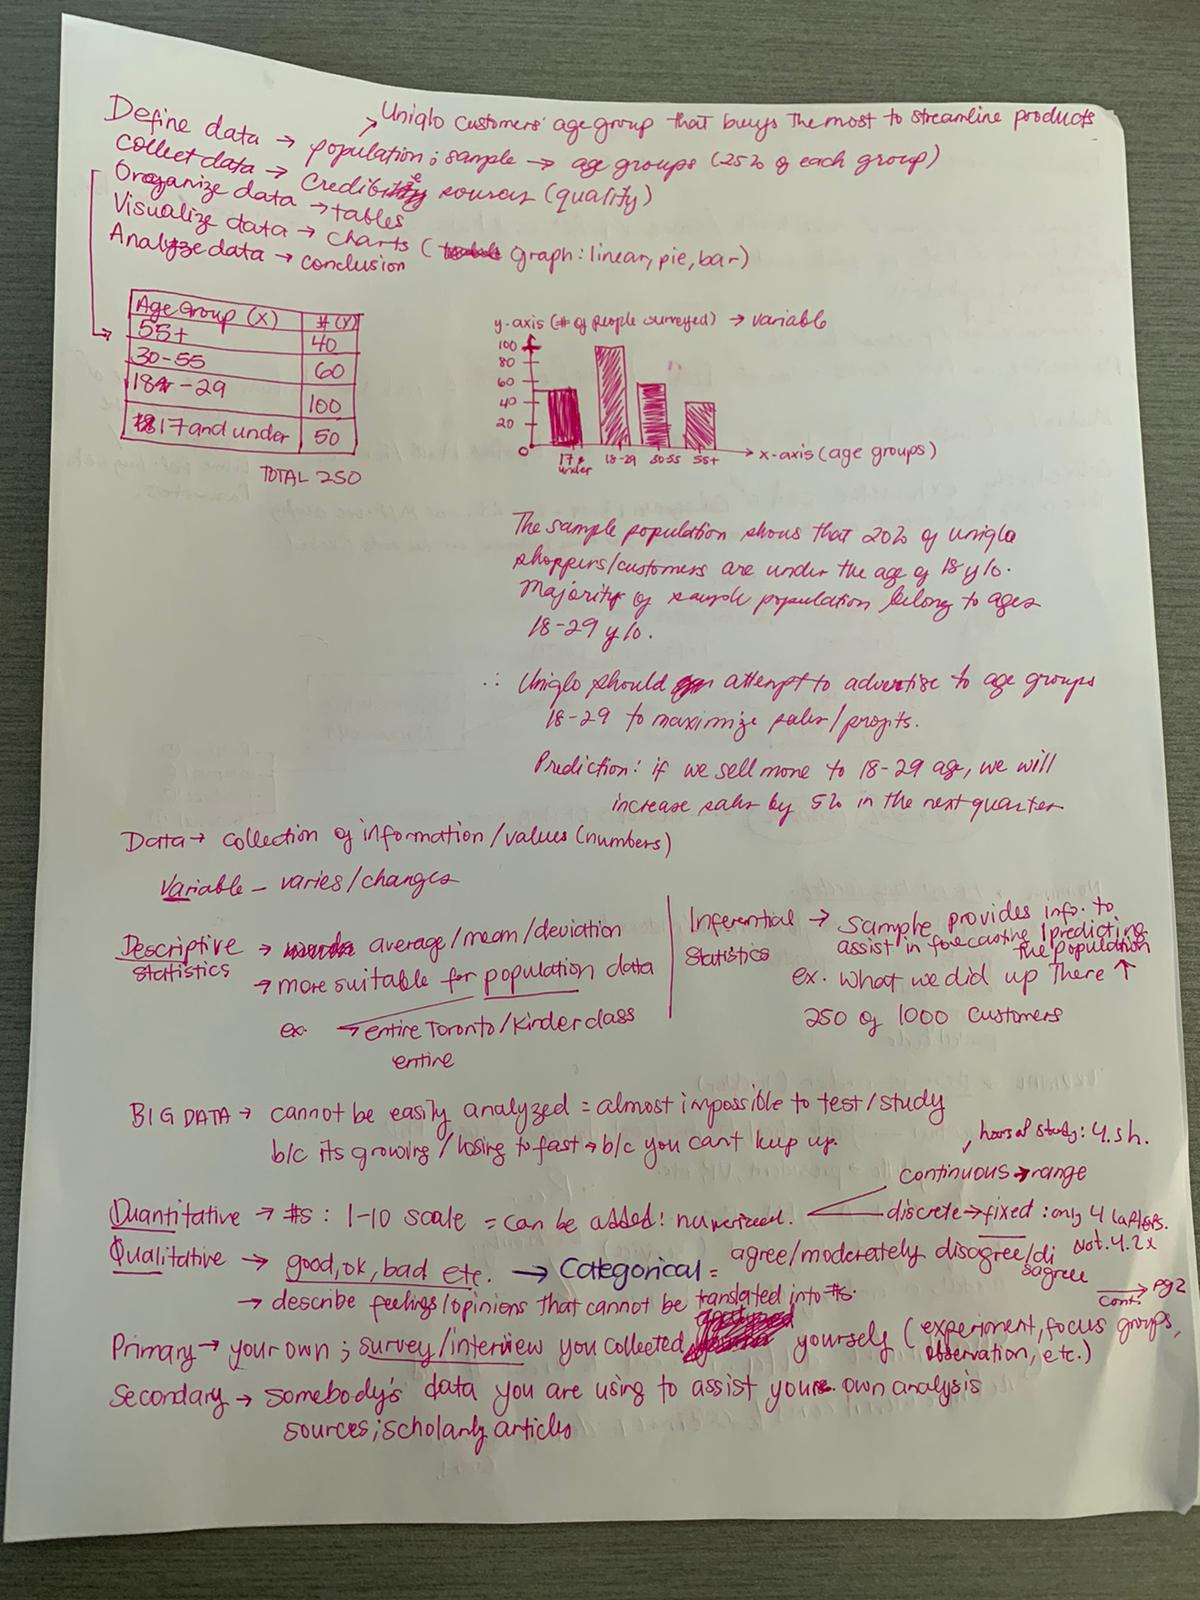 Uniqlo customers' age group that buys the most to streamline products
Define data → population; sample → age groups (25% of each group)
Collect data → Credible sources (quality)
Oroganize data → tables
Visualize data → charts ( graph: linear, pie, bar)
Analyze data → conclusion
Age Group (X) # (Y)
55+ 40
30-55 60
18 - 29 100
17 and under 50
TOTAL 250
y-axis (# of people surveyed) → variable
100
80
60
40
20
0
17 & under 18-29 30-55 55+
x-axis (age groups)
The sample population shows that 20% of uniqlo
shoppers/customers are under the age of 18 y/o.
Majority of sample population belong to ages
18-29 y/o.
∴ Uniqlo should attempt to advertise to age groups
18-29 to maximize sales/profits.
Prediction: if we sell more to 18-29 age, we will
increase sales by 5% in the next quarter
Data → collection of information/values (numbers)
Variable - varies/changes
Descriptive → average/mean/deviation
Statistics → more suitable for population data
ex. → entire Toronto/Kinder class
entire
Inferential → Sample provides info. to
Statistics assist in forecasting/predicting
the population
ex. what we did up there ↑
250 of 1000 customers
BIG DATA → cannot be easily analyzed = almost impossible to test/study
b/c its growing/losing to fast → b/c you cant keep up.
hours of study: 4.5h.
continuous → range
Quantitative → #s : 1-10 scale = can be added! numerical.
discrete → fixed : only 4 laptops.
Not. 4.2x
Qualitative → good, ok, bad etc. → Categorical = agree/moderately disagree/di
sagree
→ describe feelings/opinions that cannot be translated into #s.
cont. → pg2
Primary → your own ; survey/interview you collected yourself (experiment, focus groups,
observation, etc.)
Secondary → somebody's data you are using to assist your own analysis
sources; scholarly articles